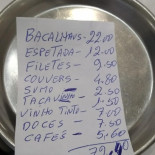 BACALHAUS-22.00
ESPETADA-12.00
FILETES-9.50
COUVERS-4.80
SUMO - 2.50
TACA VINHO-1.50
VINHO TINTO-7.00
DOCES-7.50
CAFÉS-5.60